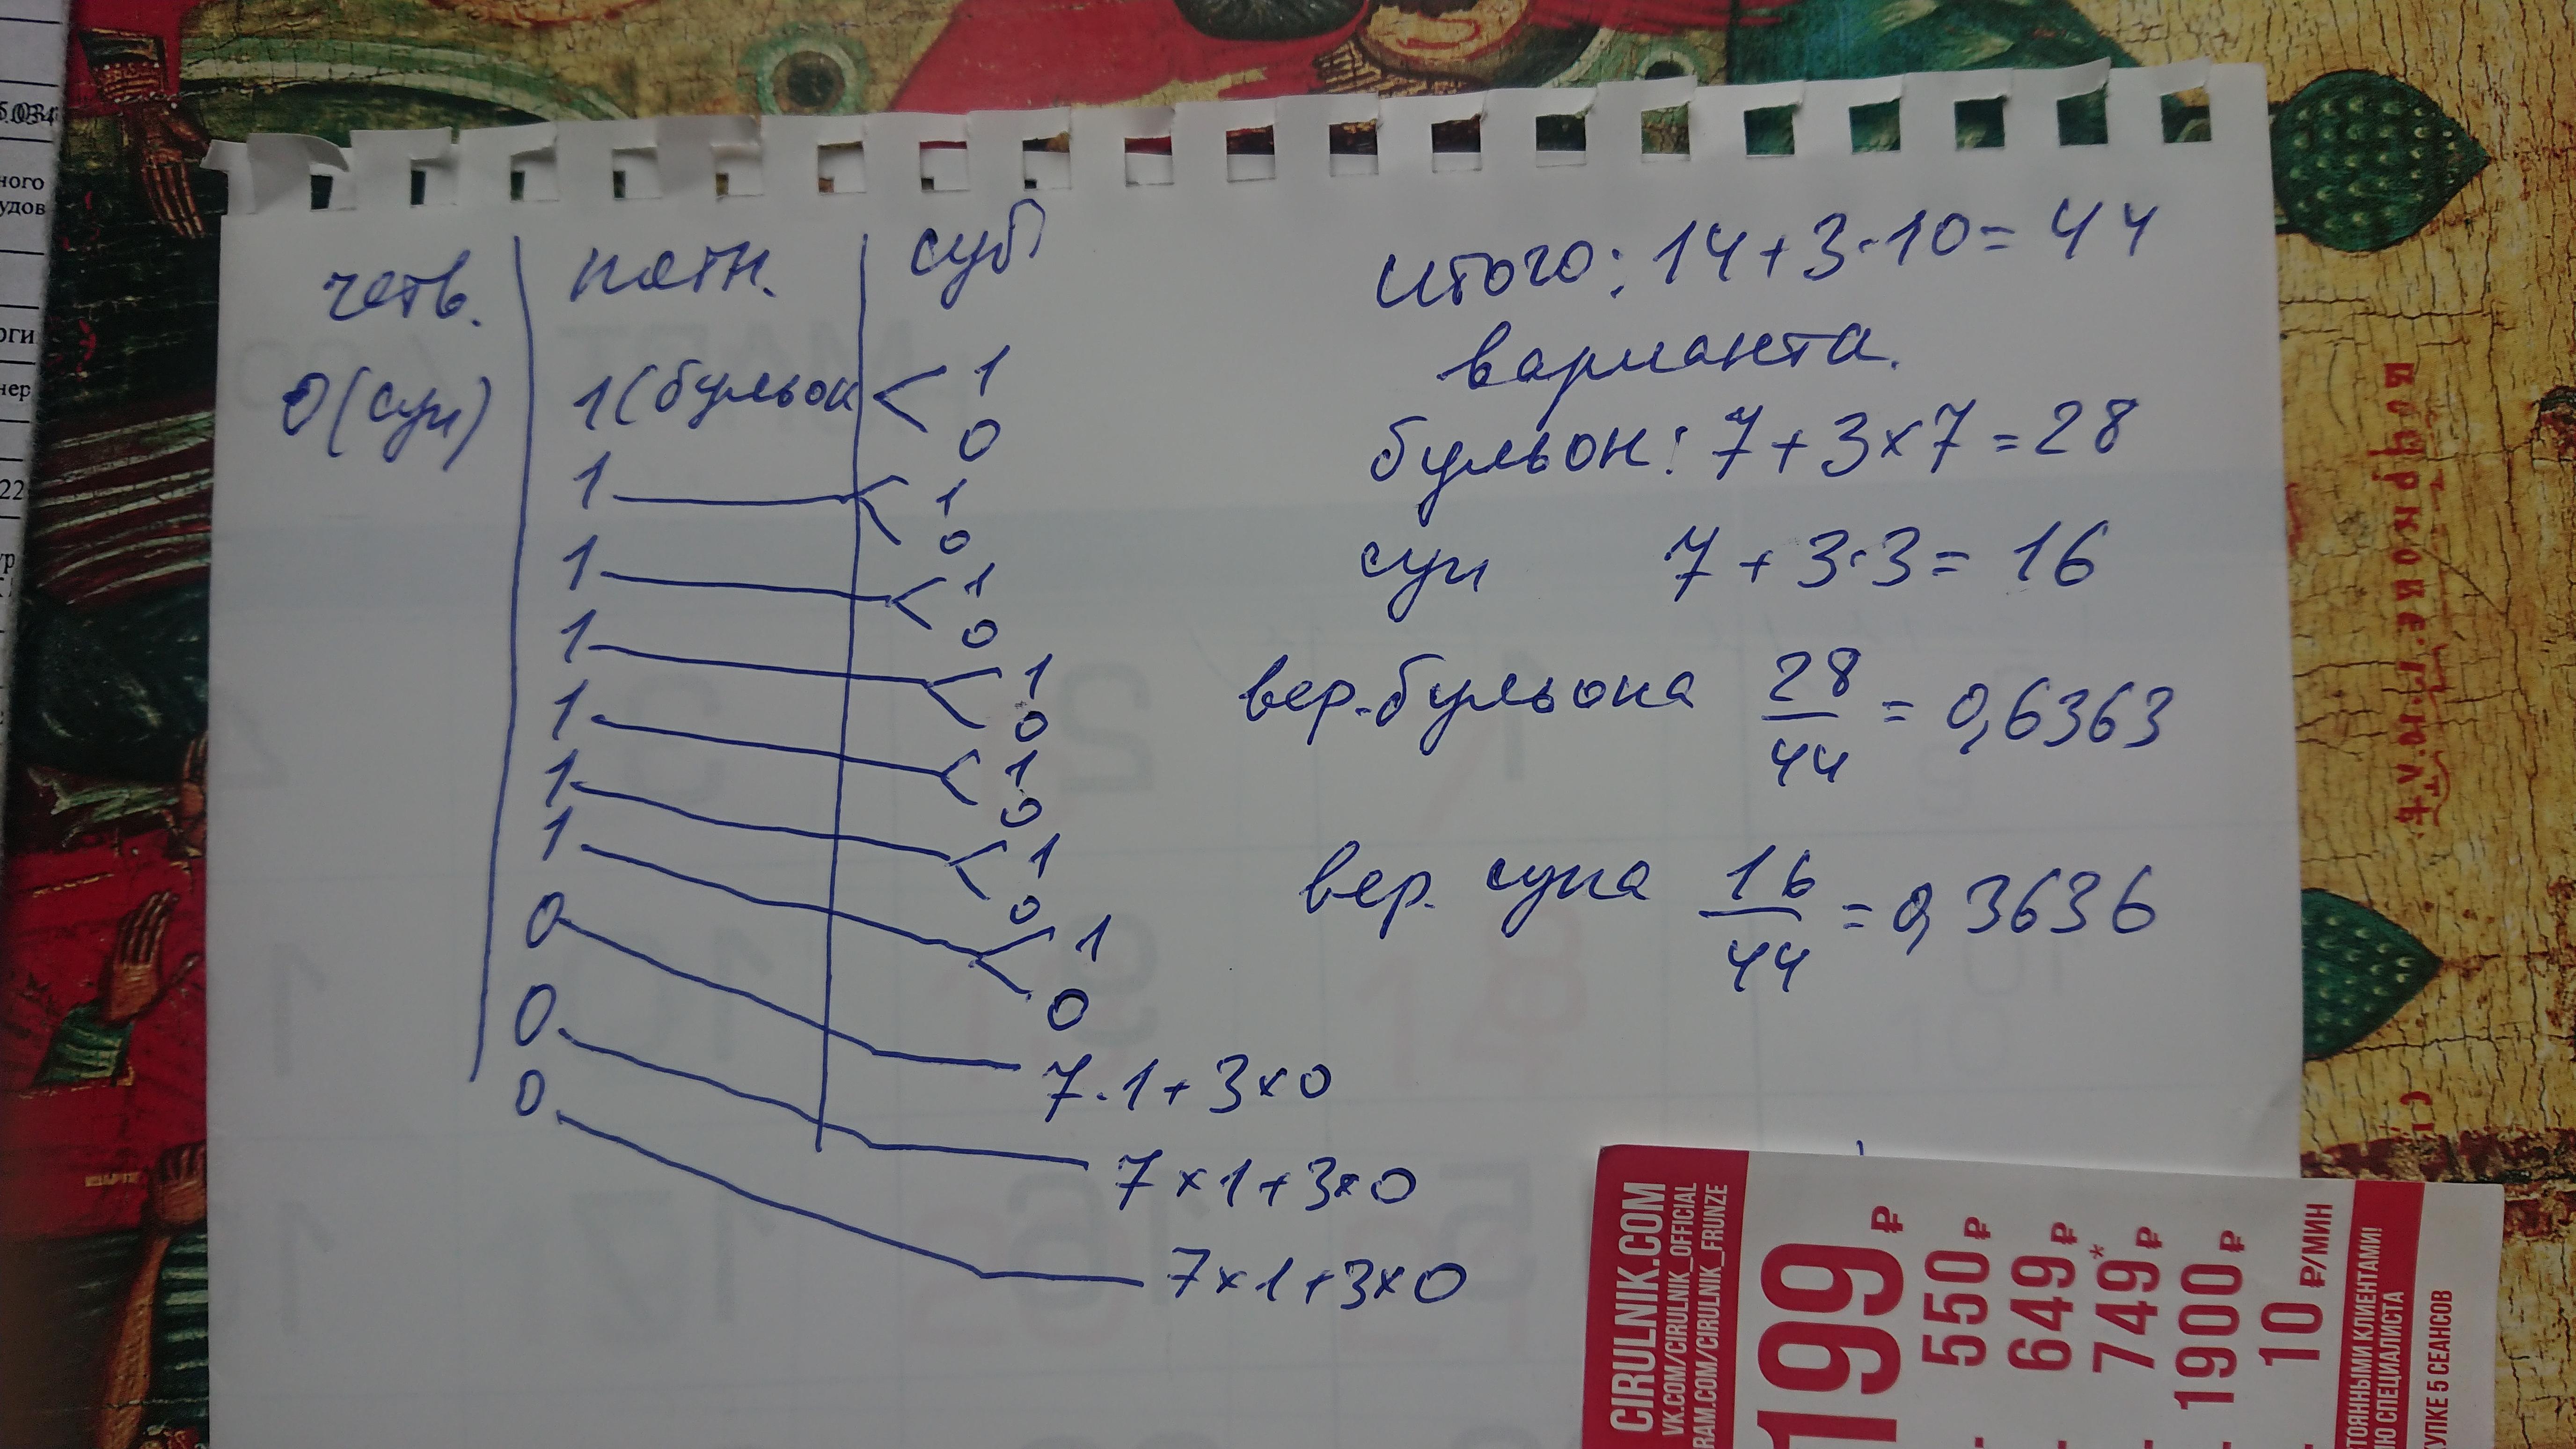 четв. пятн. суб
0(суп) 1(бульон 1
0
1 1
0
1 1
0
1 1
0
1 1
0
1 1
0
1 1
0
0 7·1+3×0
0 7×1+3×0
0 7×1+3×0
итого: 14+3·10=44
варианта.
бульон: 7+3×7=28
суп 7+3·3=16
вер. бульона 28/44 = 0,6363
вер. супа 16/44 = 0,3636
CIRULNIK.COM
VK.COM/CIRULNIK_OFFICIAL
RAM.COM/CIRULNIK_FRUNZE
199 ₽
550 ₽
649 ₽
749* ₽
1900 ₽
10 ₽/МИН
ТОЯННЫМИ КЛИЕНТАМИ!
Ю СПЕЦИАЛИСТА
УПКЕ 5 СЕАНСОВ
ного
удов
22